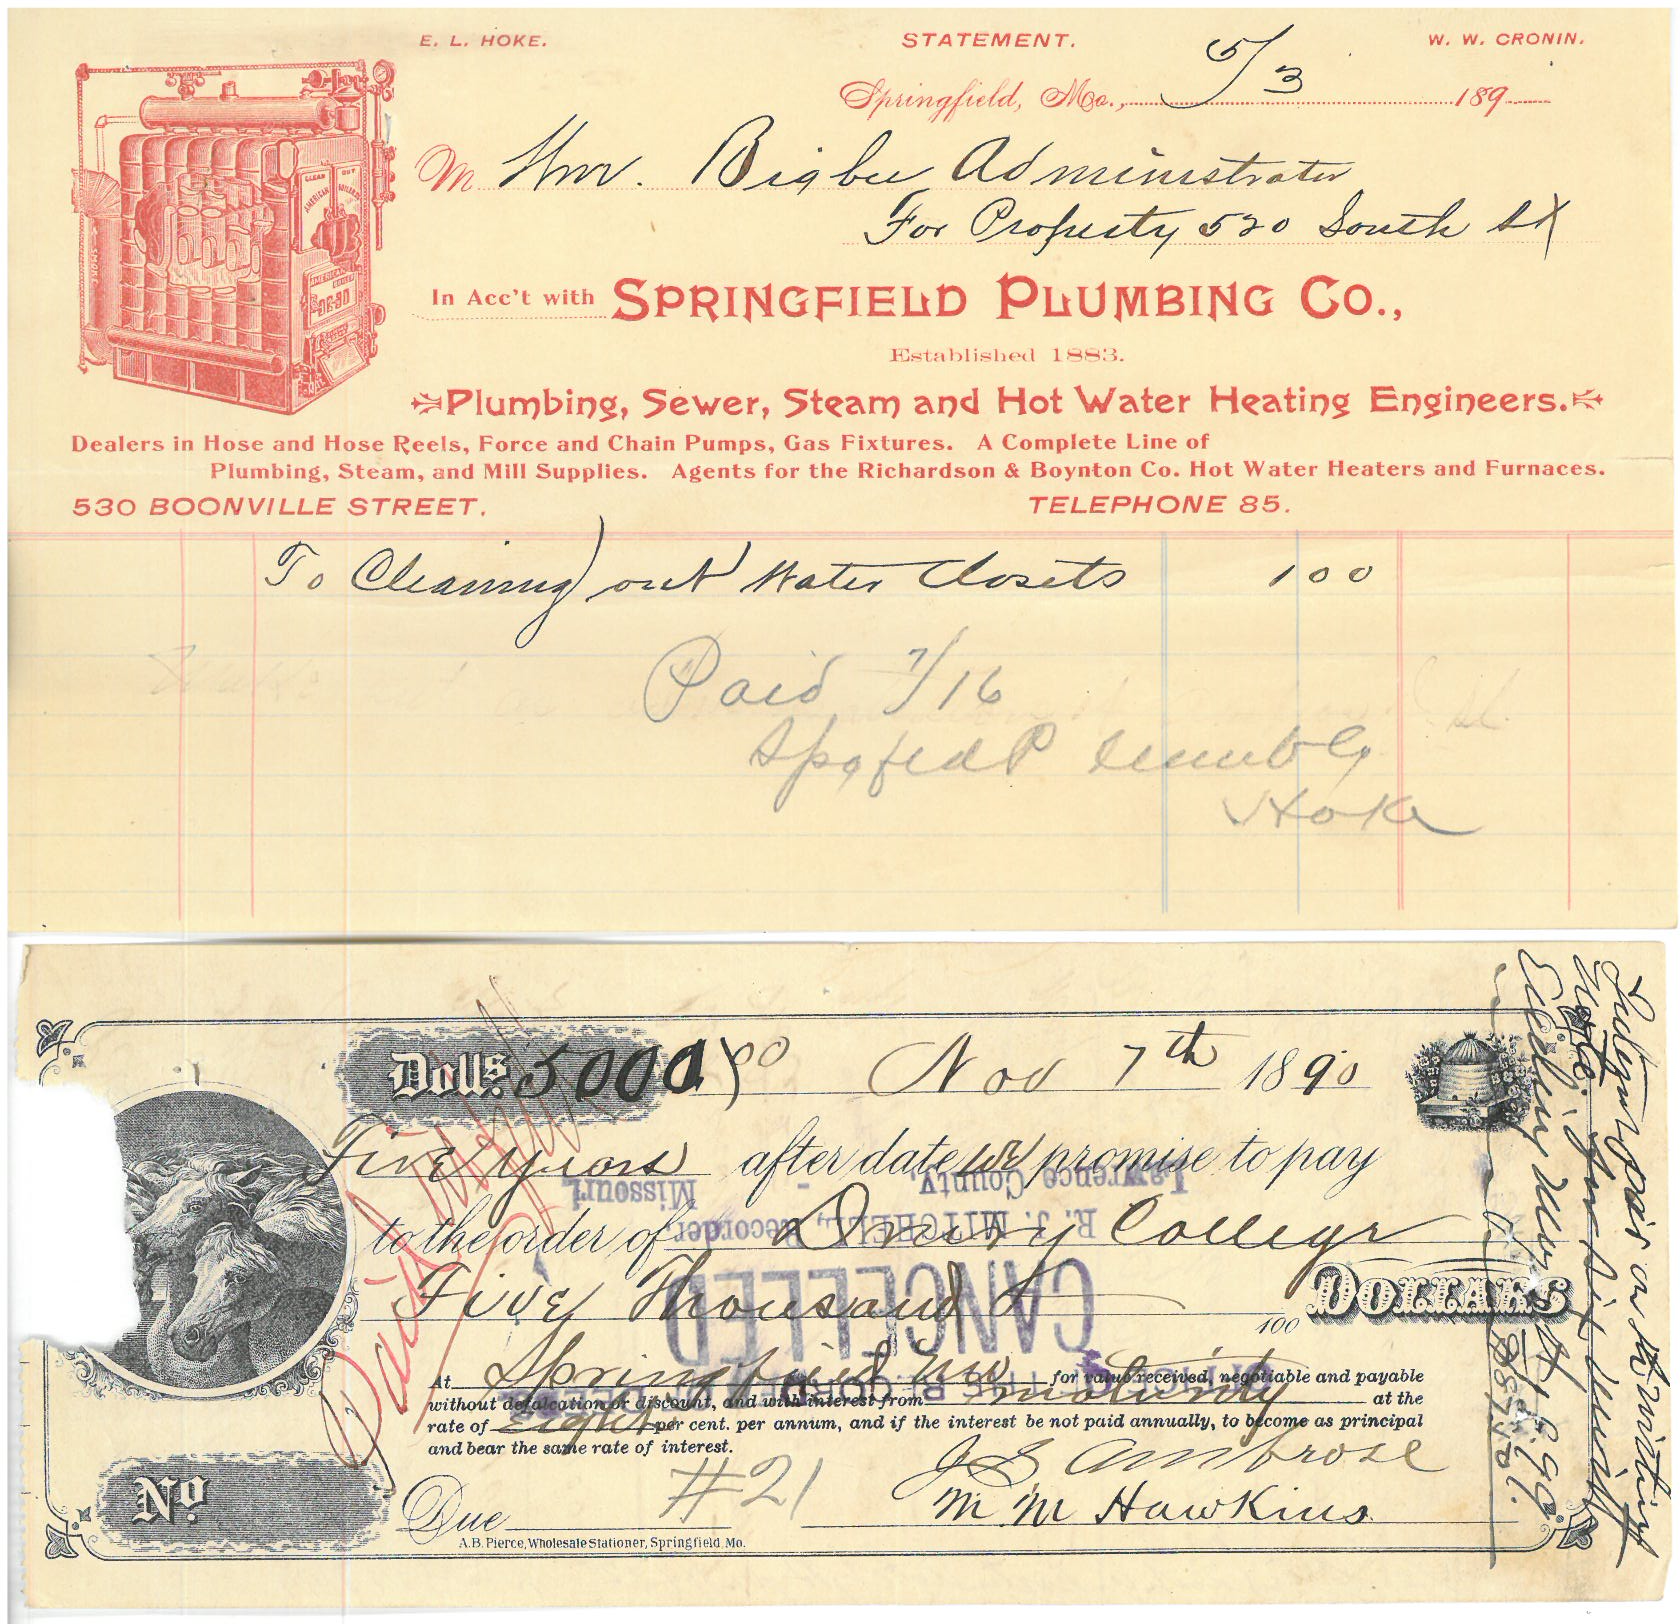 E. L. HOKE.
STATEMENT.
W. W. CRONIN.
Springfield, Mo., 5/3 189
M Wm. Bigbee Administrator
For Property 520 South St
In Acc't with SPRINGFIELD PLUMBING CO.,
Established 1883.
Plumbing, Sewer, Steam and Hot Water Heating Engineers.
Dealers in Hose and Hose Reels, Force and Chain Pumps, Gas Fixtures. A Complete Line of
Plumbing, Steam, and Mill Supplies. Agents for the Richardson & Boynton Co. Hot Water Heaters and Furnaces.
530 BOONVILLE STREET.
TELEPHONE 85.
To Cleaning out Water Closets 100
Paid 7/16
Spgfield Plumb Co
Hoke
CLEAN OUT
AMERICAN BOILER
Dolls. 5000.00 Nov 7th 1890
Five Years after date we promise to pay
to the order of Drury College
Five Thousand & /100 DOLLARS
At Springfield Mo for value received, negotiable and payable
without defalcation or discount, and with interest from maturity at the
rate of Eight per cent. per annum, and if the interest be not paid annually, to become as principal
and bear the same rate of interest.
J S Ambrose
M M Hawkins
No.
Due
#21
A.B. Pierce, Wholesale Stationer, Springfield Mo.
CANCELLED
R. J. MITCHELL, Recorder,
Lawrence County,
Missouri
Paid